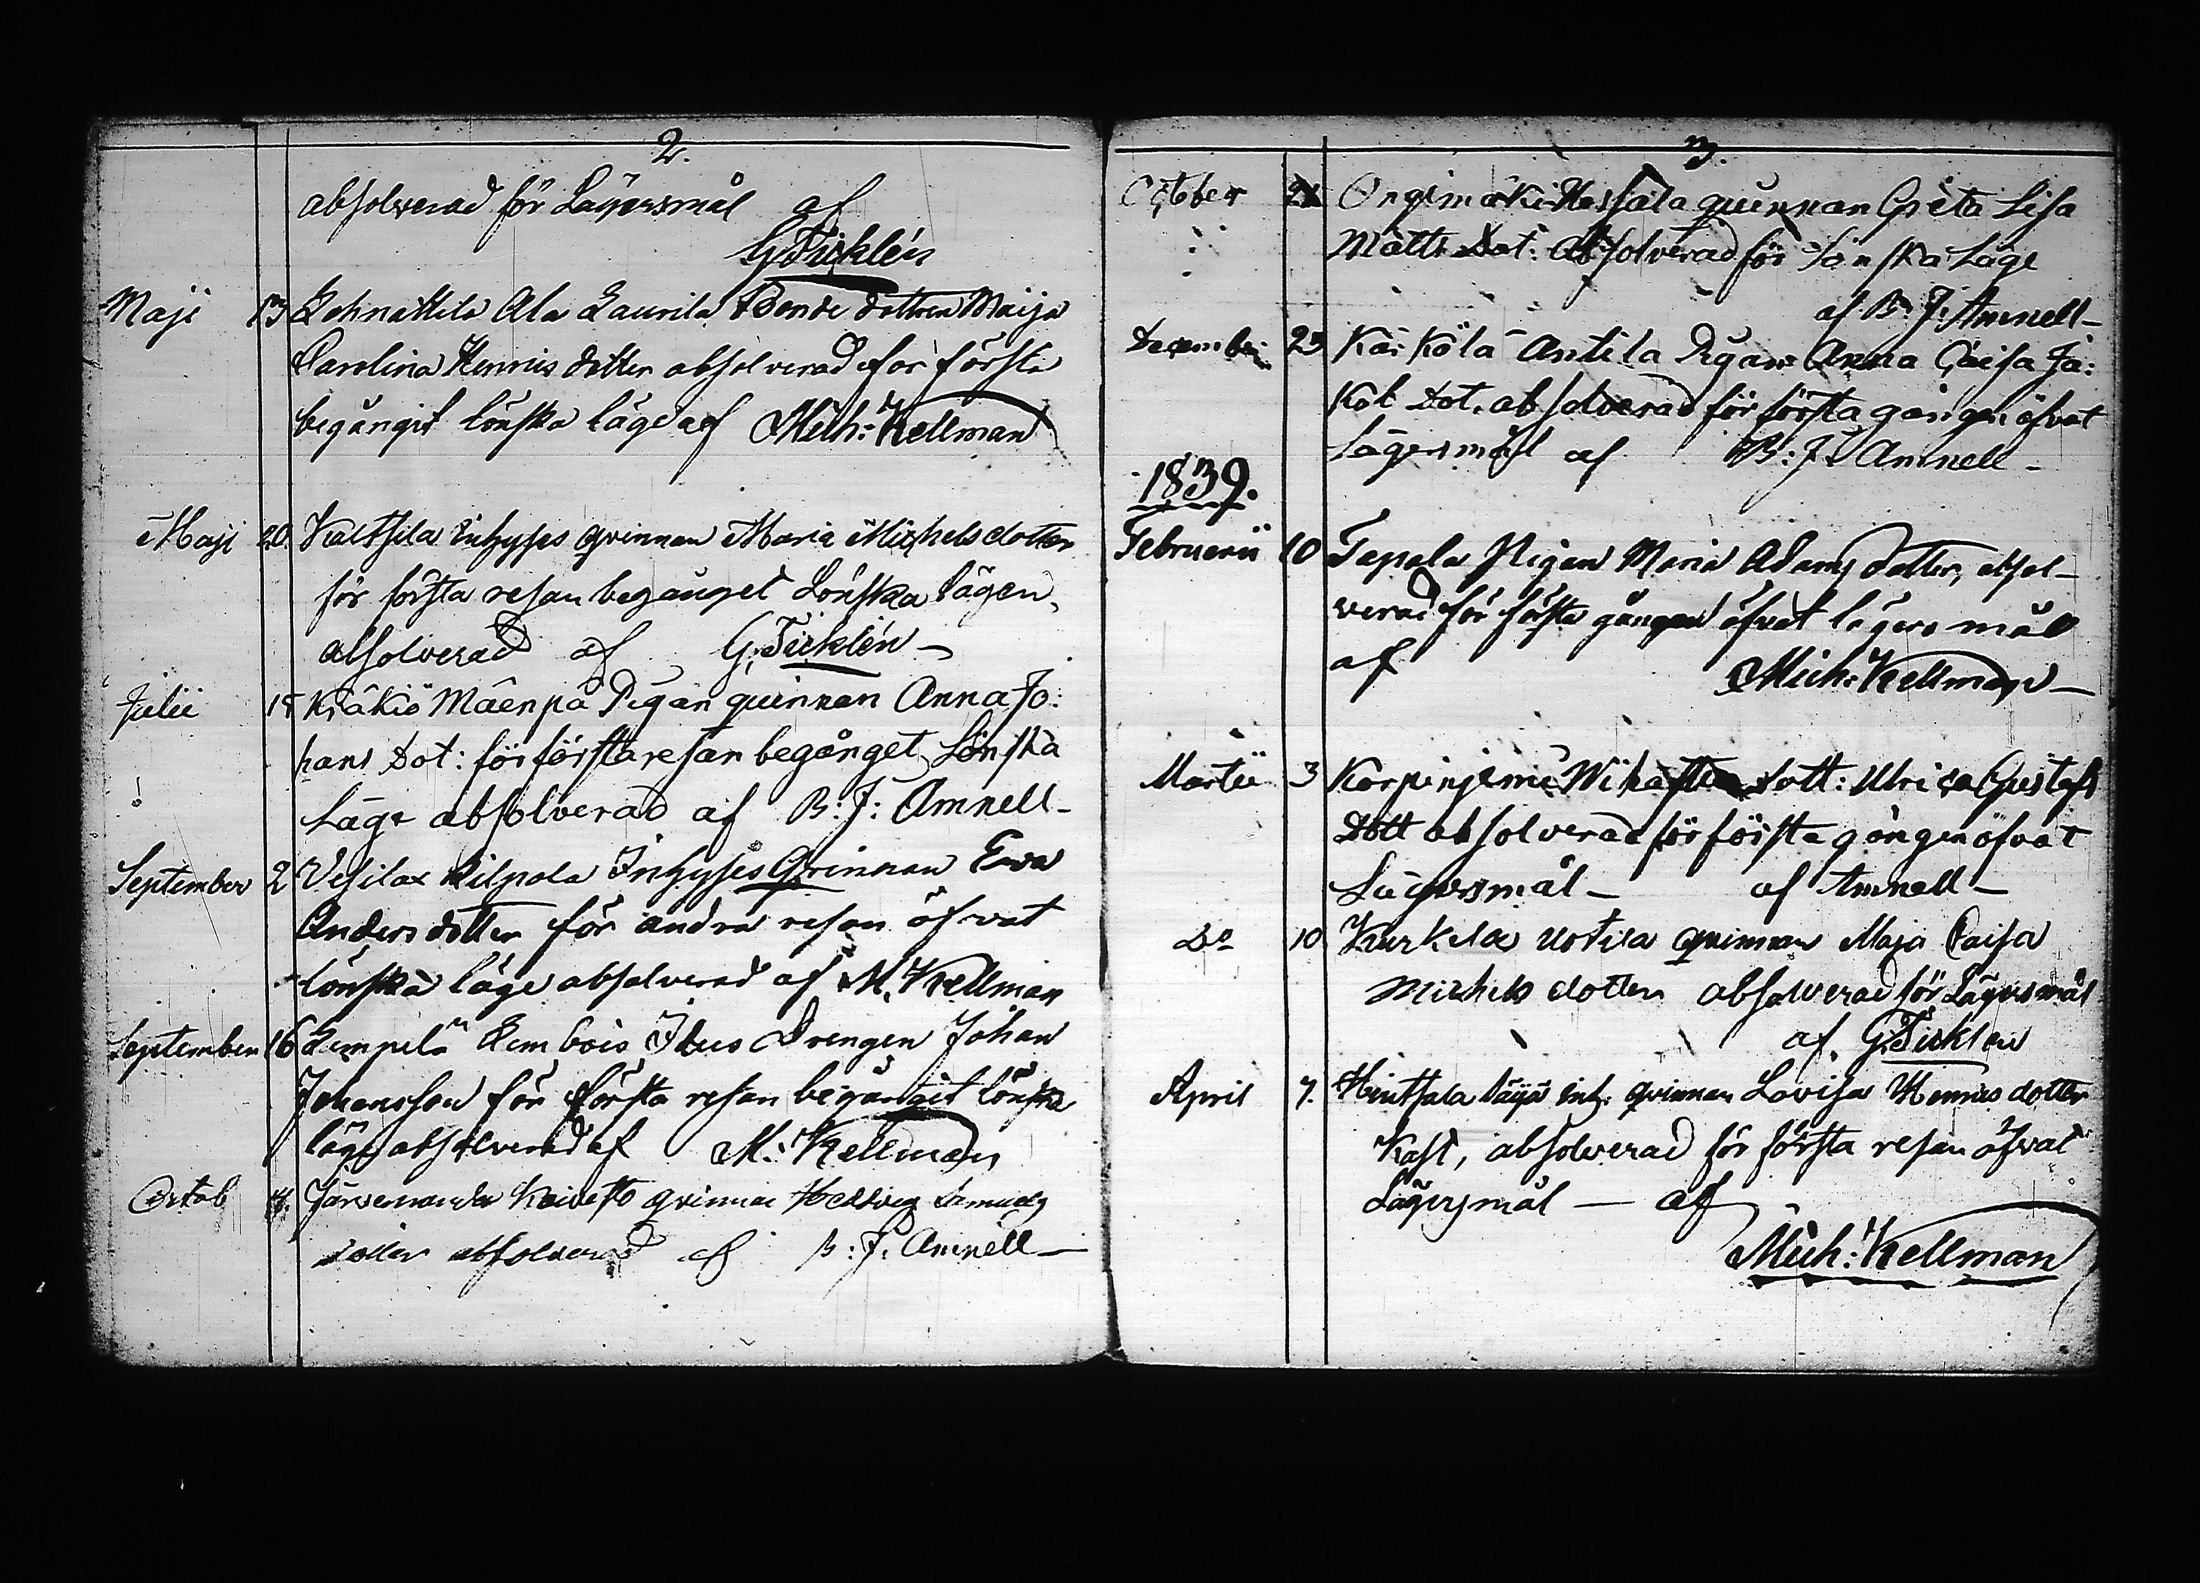 2.
absolverad för Lägersmål af
G. Ticklén
Maji 13 Lehnattila Ala Laurila Bonde dottren Maija
Carolina Henris dotter absolverad for första
begångit lönska läge af Mich: Kellman
Maji 20. Kaltsila Inhyses qvinnan Maria Michels dotter
för första resan begånget Lönska lägen,
absolverad af G. Ticklén
Julii 15 Kräkiö Mäenpä Pigan quinnan Anna Jo:
hans Dot: för första resan begånget Lönska
Läge absolverad af B: J: Amnell
September 2 Vesilax Kilpala Inhyses Qvinnan Ewa
Anders dotter för andra resan öfvat
lönska läge absolverad af M. Kellman
September 16 Lempelä Lembois Drengen Johan
Johansson för första resan begångit lönska
läge absolverad af M: Kellman
Octob qvinnan Hedvig Samuels
dotter absolverad af B: J: Amnell
3.
October 21 Ongimäki Hassala quinnan Greta Lisa
Matts Dot: Absolverad för Lönska Läge
af B: J: Amnell
December 23 Kärkölä Antila Pigan Anna Caisa Ja:
kob Dot. absolverad för första gången öfvat
Lägersmål af B: J: Amnell
1839.
Februarii 10 Tapala Pigan Maria Adams dotter, absol-
verad för första gången öfvat lägersmål
af Mich: Kellman
Martii 3 Korpinjemi dott: Ulrica Gustafs
Dott absolverad för första gången öfvat
Lägersmål af Amnell
Do 10 Kurkela Uotila quinnan Maja Caisa
Michels dotter absolverad för Lägersmål
af G. Ticklén
April 7. Hintsala Inh. qvinnan Lovisa Henris dotter
Kast, absolverad för första resan öfvat
Lägersmål — af
Mich: Kellman